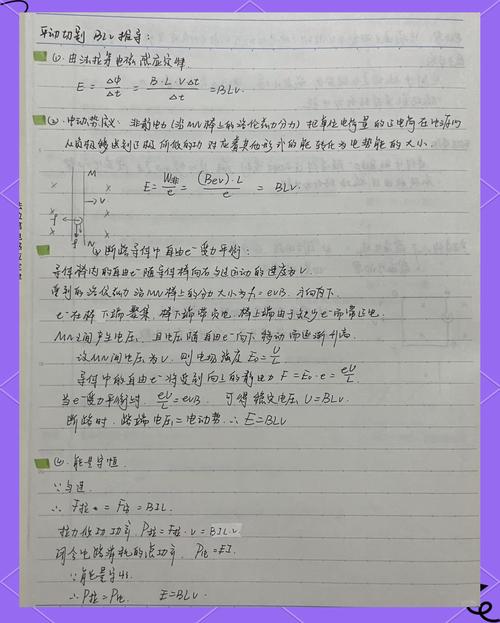 平动切割 BLv推导：
(1). 由法拉第电磁感应定律
E = ΔΦ/Δt = B·L·vΔt/Δt = BLv.
(2). 电动势定义：非静电力(沿MN棒上的洛伦兹力分力)把单位电荷量的正电荷在电源内
从负极移送到正极所做的功 对应着其他形式的能转化为电势能的大小.
M
E = W非/e = (Bev)·L/e = BLv.
v
f
N
断路导体中自由e⁻受力平衡：
导体棒内的自由e⁻随导体棒向右匀速运动的速度为v
受到的洛伦兹力沿MN棒上的分力大小为f₁=evB. 方向向下.
e⁻在棒下端聚集，棒下端带负电，棒上端由于缺少e⁻而带正电.
MN之间产生电压，且电压随自由e⁻向下移动而逐渐升高.
设MN间电压为U. 则电场强度E₀=U/L
导体中的自由e⁻将受到向上的静电力F=E₀·e=eU/L
当e⁻受力平衡时. eU/L=evB. 可得稳定电压U=BLv.
断路时. 路端电压=电动势. ∴E=BLv
能量守恒
∵匀速.
∴F拉=F安=BIL.
拉力做功功率. P拉=F拉·v=BILv.
闭合电路消耗的总功率. P电=EI.
∵能量守恒.
∴P拉=P电. E=BLv